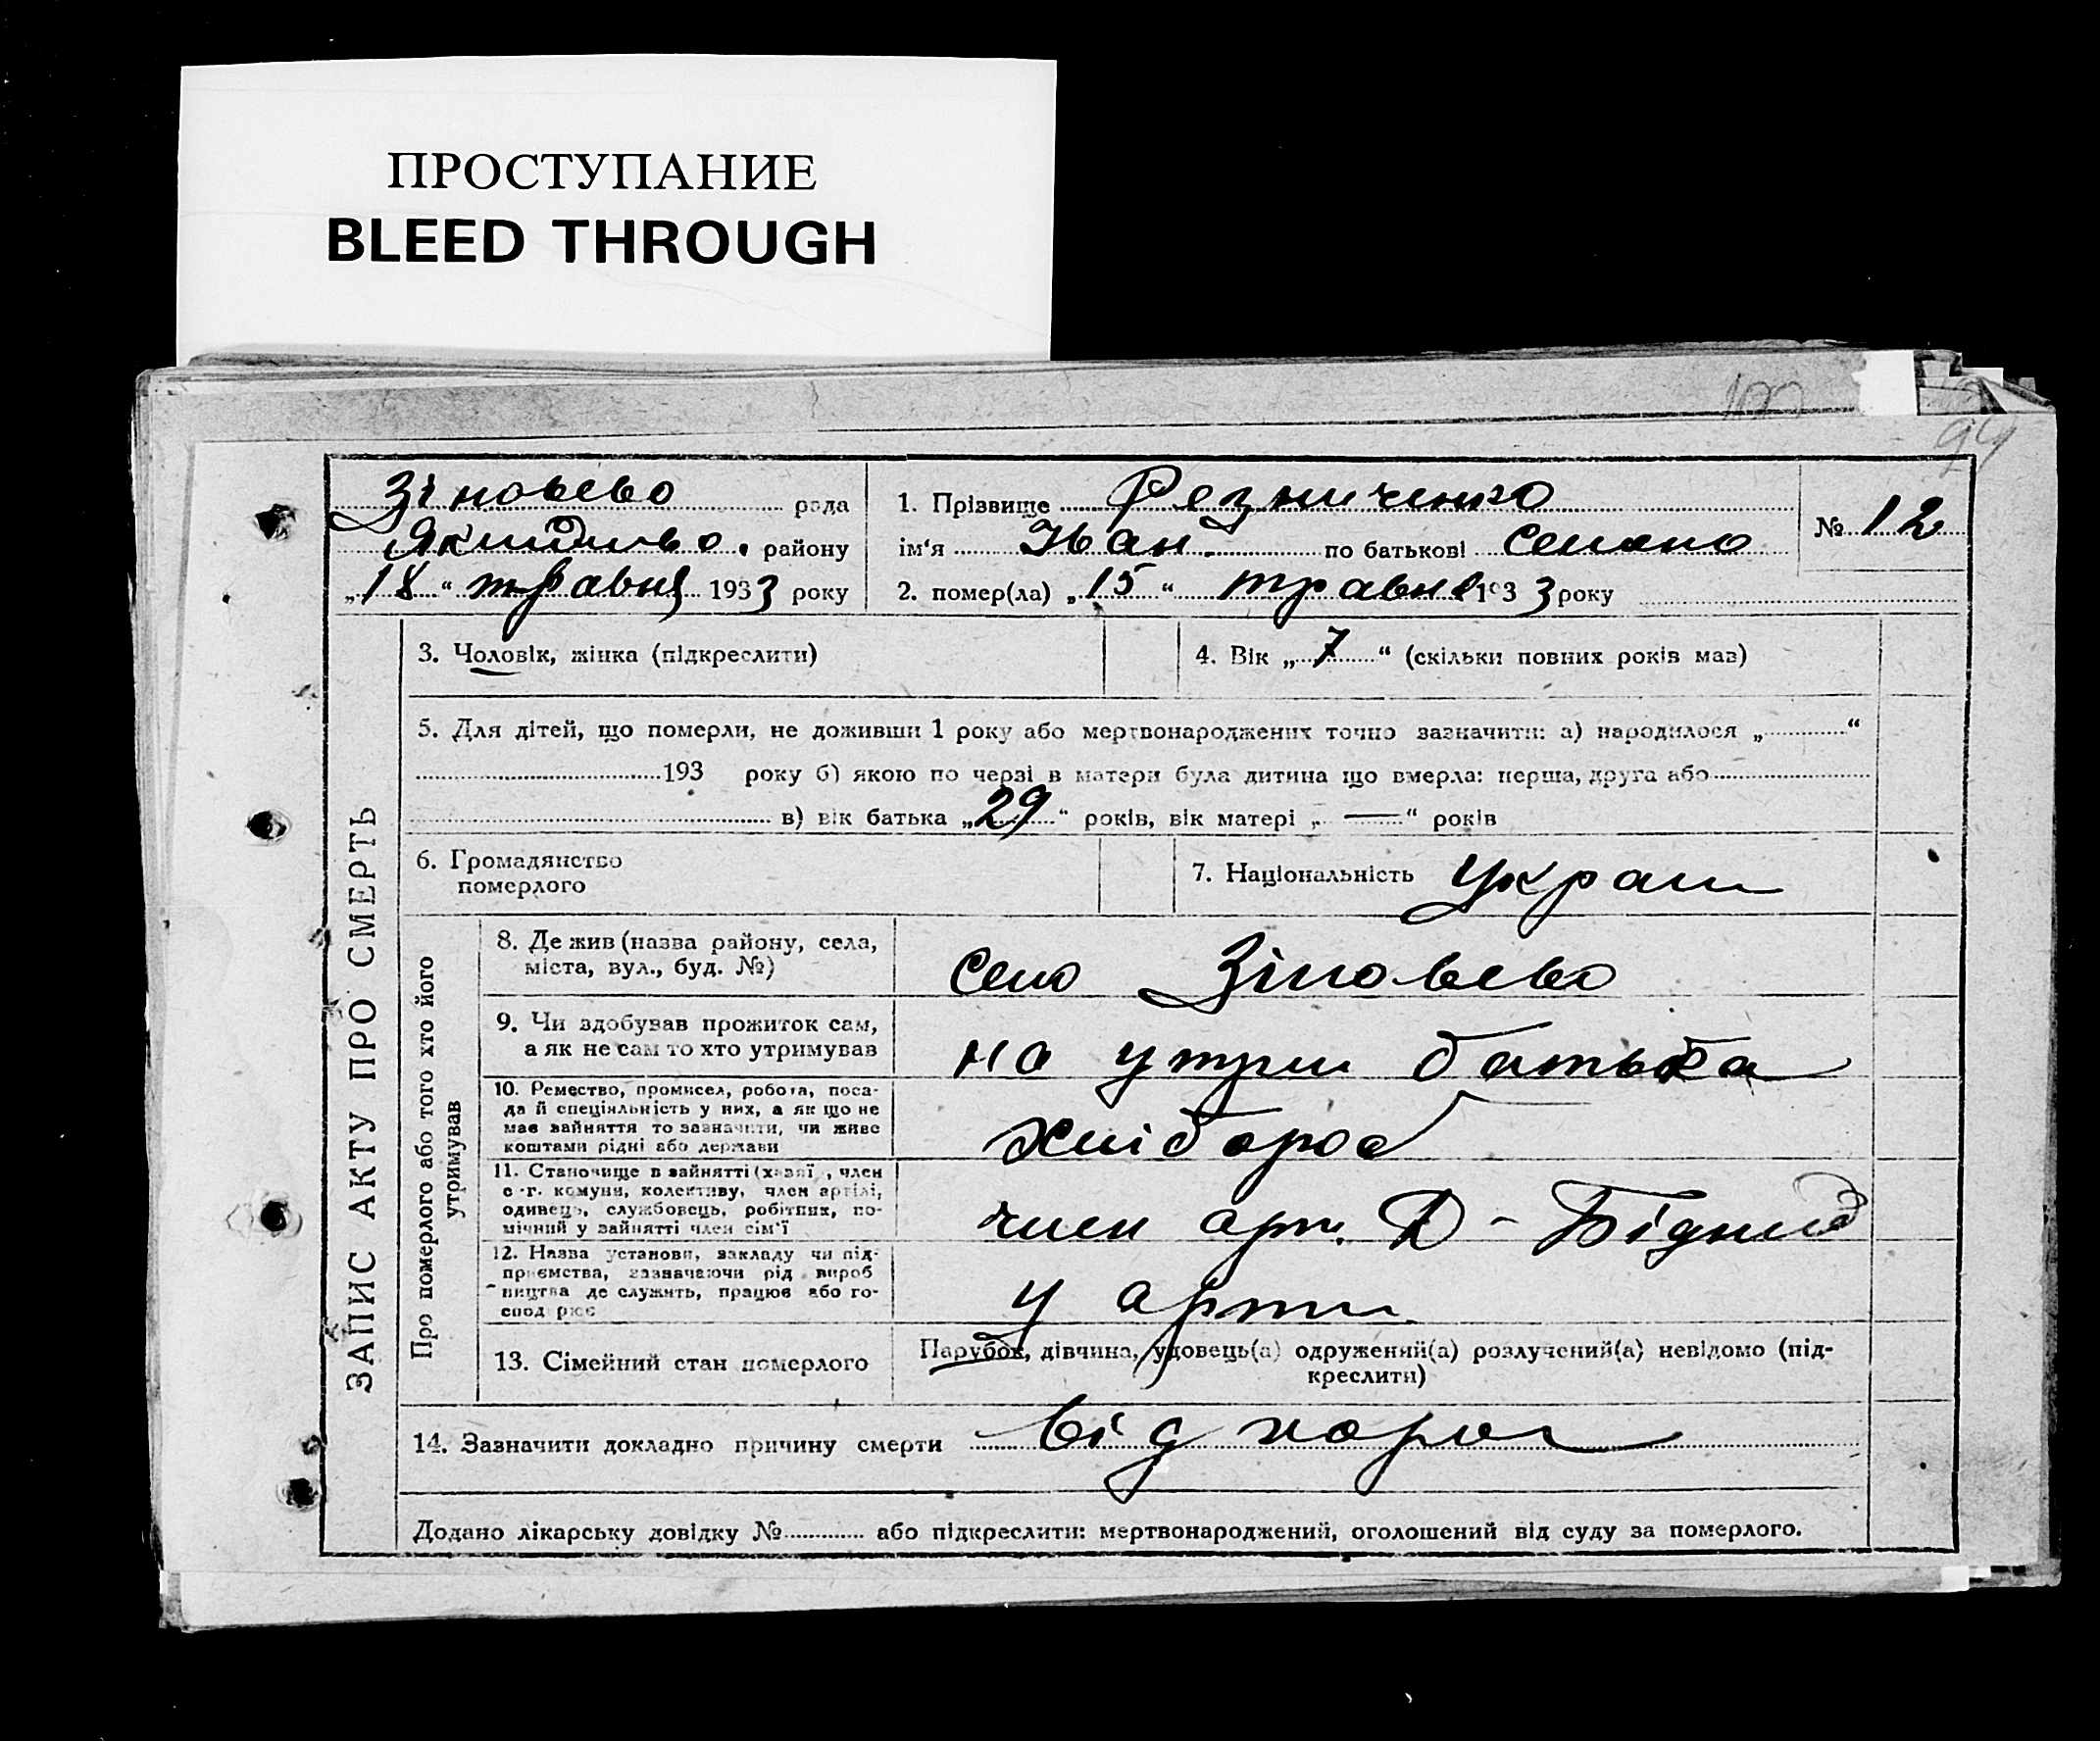 ПРОСТУПАНИЕ
BLEED THROUGH
94
Зіновьево рада
району
„18“ травня 1933 року
1. Прізвище Резниченко
ім'я Іван по батькові
2. помер(ла) „15“ травня 1933 року
№ 12
ЗАПИС АКТУ ПРО СМЕРТЬ
3. Чоловік, жінка (підкреслити)
4. Вік „7“ (скільки повних років мав)
5. Для дітей, що померли, не доживши 1 року або мертвонароджених точно зазначити: а) народилося „ “
193 року б) якою по черзі в матери була дитина що вмерла: перша, друга або
в) вік батька „29“ років, вік матері „—“ років
6. Громадянство
померлого
7. Національність Украин
Про померлого або того хто його
утримував
8. Де жив (назва району, села,
міста, вул., буд. №)
село Зіновьево
9. Чи здобував прожиток сам,
а як не сам то хто утримував
на утрим батька
10. Ремество, промисел, робота, поса-
да й спеціяльність у них, а як що не
має зайняття то зазначити, чи живе
коштами рідні або держави
хлібороб
11. Становище в зайнятті (хазяї , член
с-г. комуни, колективу, член артілі,
одинець, службовець, робітник, по-
мічний у зайнятті член сім'ї
член арт. Д-Бідний
12. Назва установи, закладу чи під-
приємства, зазначаючи рід вироб
ництва де служить, працює або го-
спод рює
у арти
13. Сімейний стан померлого
Парубок, дівчина, удовець(а) одружений(а) розлучений(а) невідомо (під-
креслити)
14. Зазначити докладно причину смерти від
Додано лікарську довідку № або підкреслити: мертвонароджений, оголошений від суду за померлого.